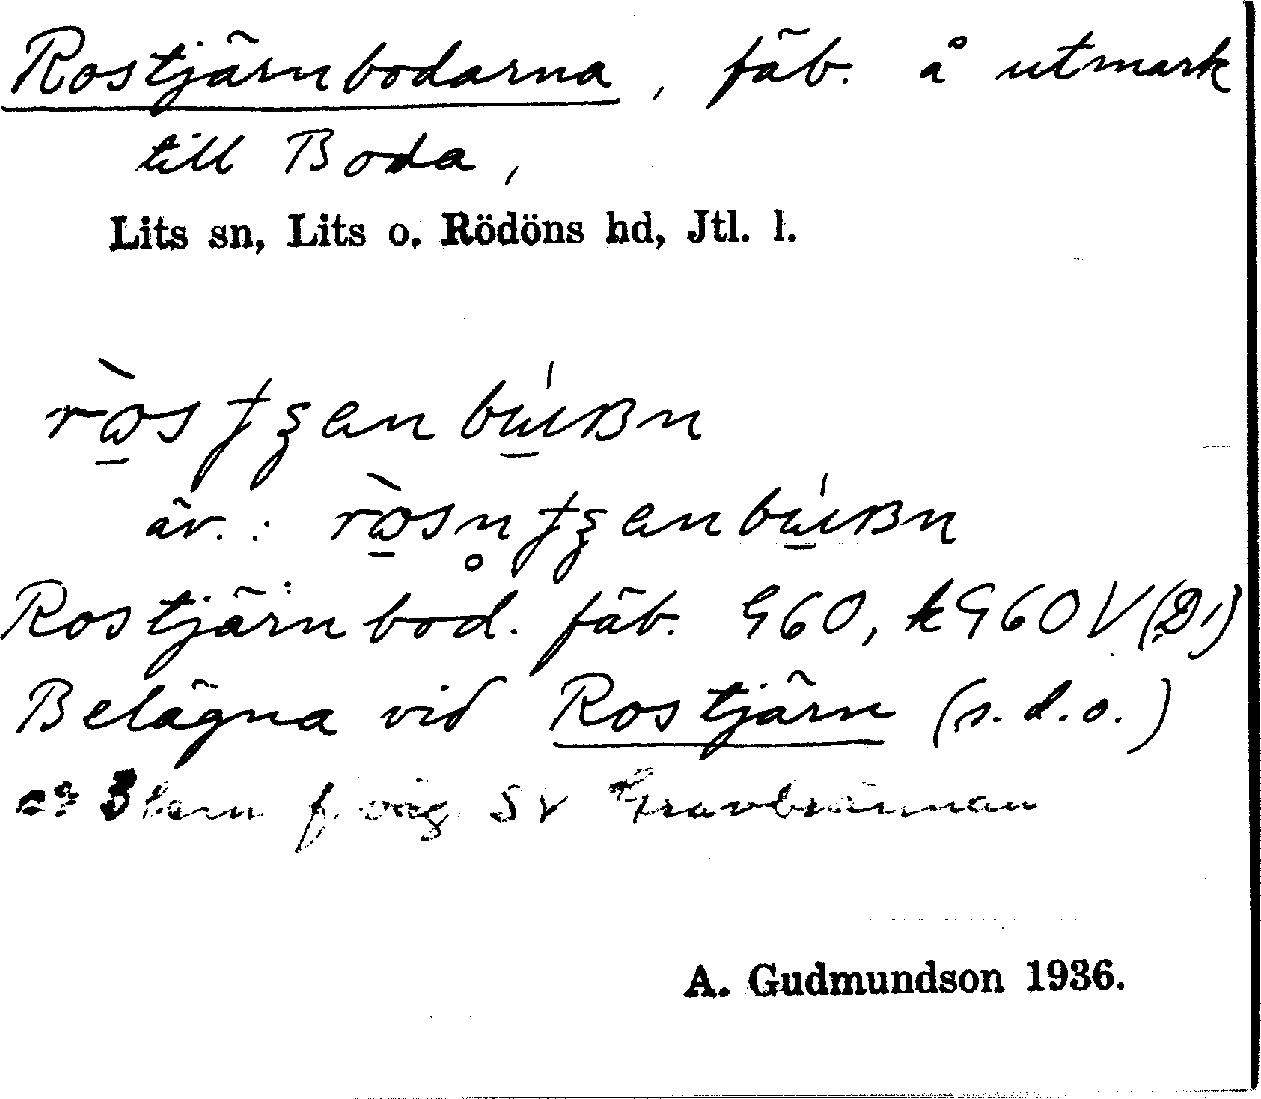 Rostjärnbodarna, fäb. å utmark
till Boda,
Lits sn, Lits o. Rödöns hd, Jtl. l.
äv.:
Rostjärnbod. fäb. G60, kG60V (D1)
Belägna vid Rostjärn (s.d.o.)
3 km f. väg SV Gravbrännan
A. Gudmundson 1936.